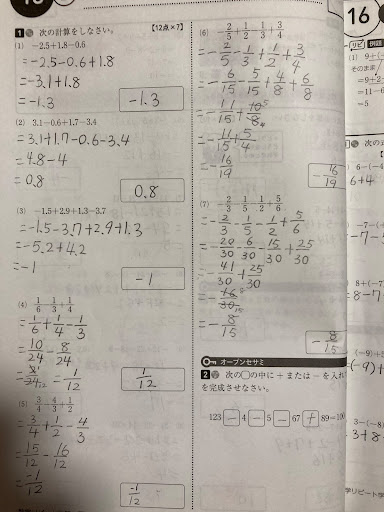 1 次の計算をしなさい。 【12点×7】
(1) −2.5+1.8−0.6
=−2.5−0.6+1.8
=−3.1+1.8
=−1.3
−1.3
(2) 3.1−0.6+1.7−3.4
=3.1+1.7−0.6−3.4
=4.8−4
=0.8
0.8
(3) −1.5+2.9+1.3−3.7
=−1.5−3.7+2.9+1.3
=−5.2+4.2
=−1
−1
(4)
=1/6+1/4+1/3
=10/24−8/24
1/12
(5)
=3/4+1/2−4/3
=15/12−16/12
=−1/12
−1/12
(6) −2/5+1/2−1/3+3/4
=−2/5−1/3+1/2+3/4
=−6/15−5/15+4/8+6/8
=−11/15+10/8
=−11/15+5/4
=−16/19
−16/19
(7)
=−2/3−1/5−1/2+5/6
=−20/30−6/30−15/30+25/30
=−41/30+25/30
=−16/30
=−8/15
−8/15
オープンセサミ
2 次の□の中に＋または−を入れ
を完成させなさい。
123−4−5−67+89=100
16
リピ 例題
(1) 9+(−
そのまま
=9+2−
=11−6
=5
次の
6−(−4
6+4
−7−(−
8+(−7
8−7
(−9)+
3−(−8)
−3+8
学リピート学